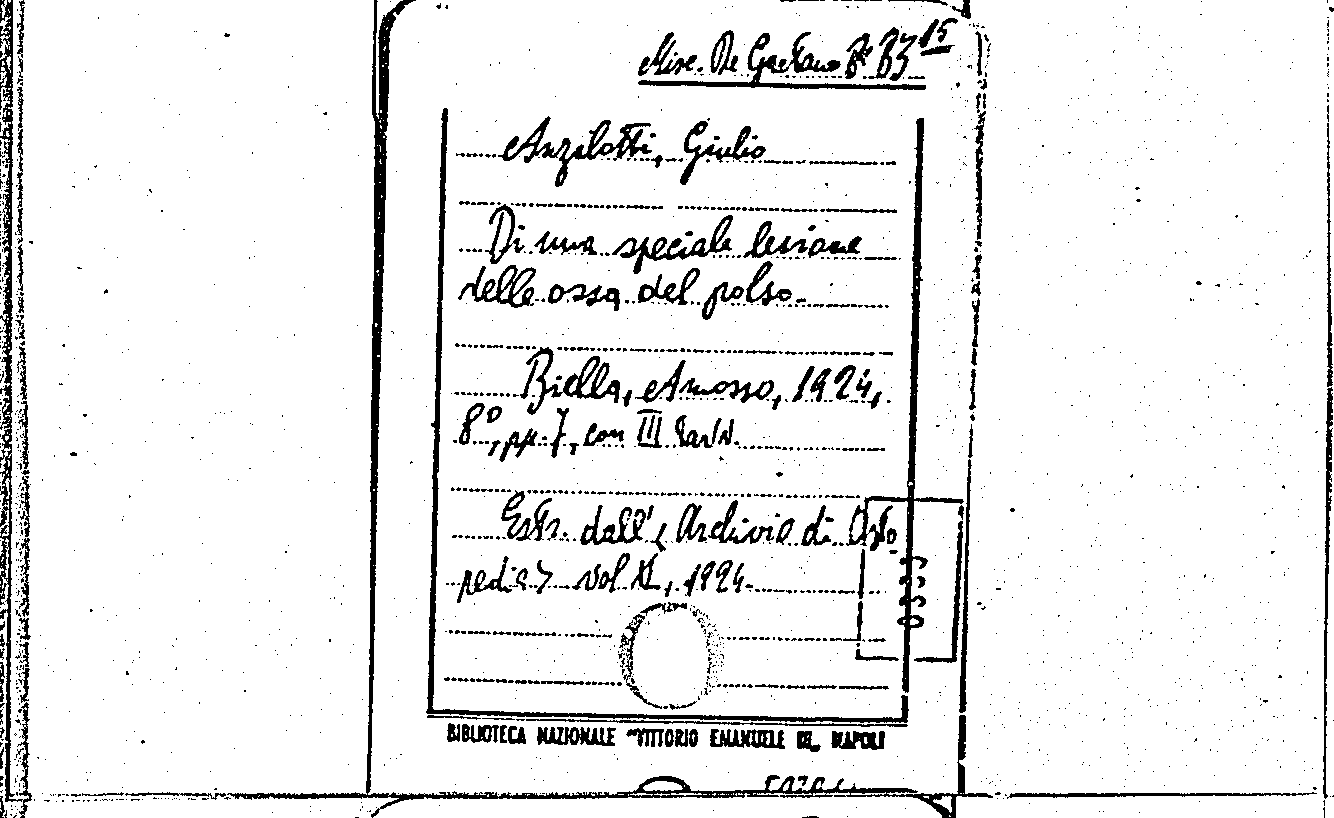 Misc. De Gaetano B* B3 15
Anzilotti, Giulio
Di una speciale lesione
delle ossa del polso.
Biella, Amosso, 1924,
8°, pp. 7, con III tavv.
Estr. dall'< Archivio di Orto
pedia> vol XL, 1924.
BIBLIOTECA NAZIONALE "VITTORIO EMANUELE III„ NAPOLI